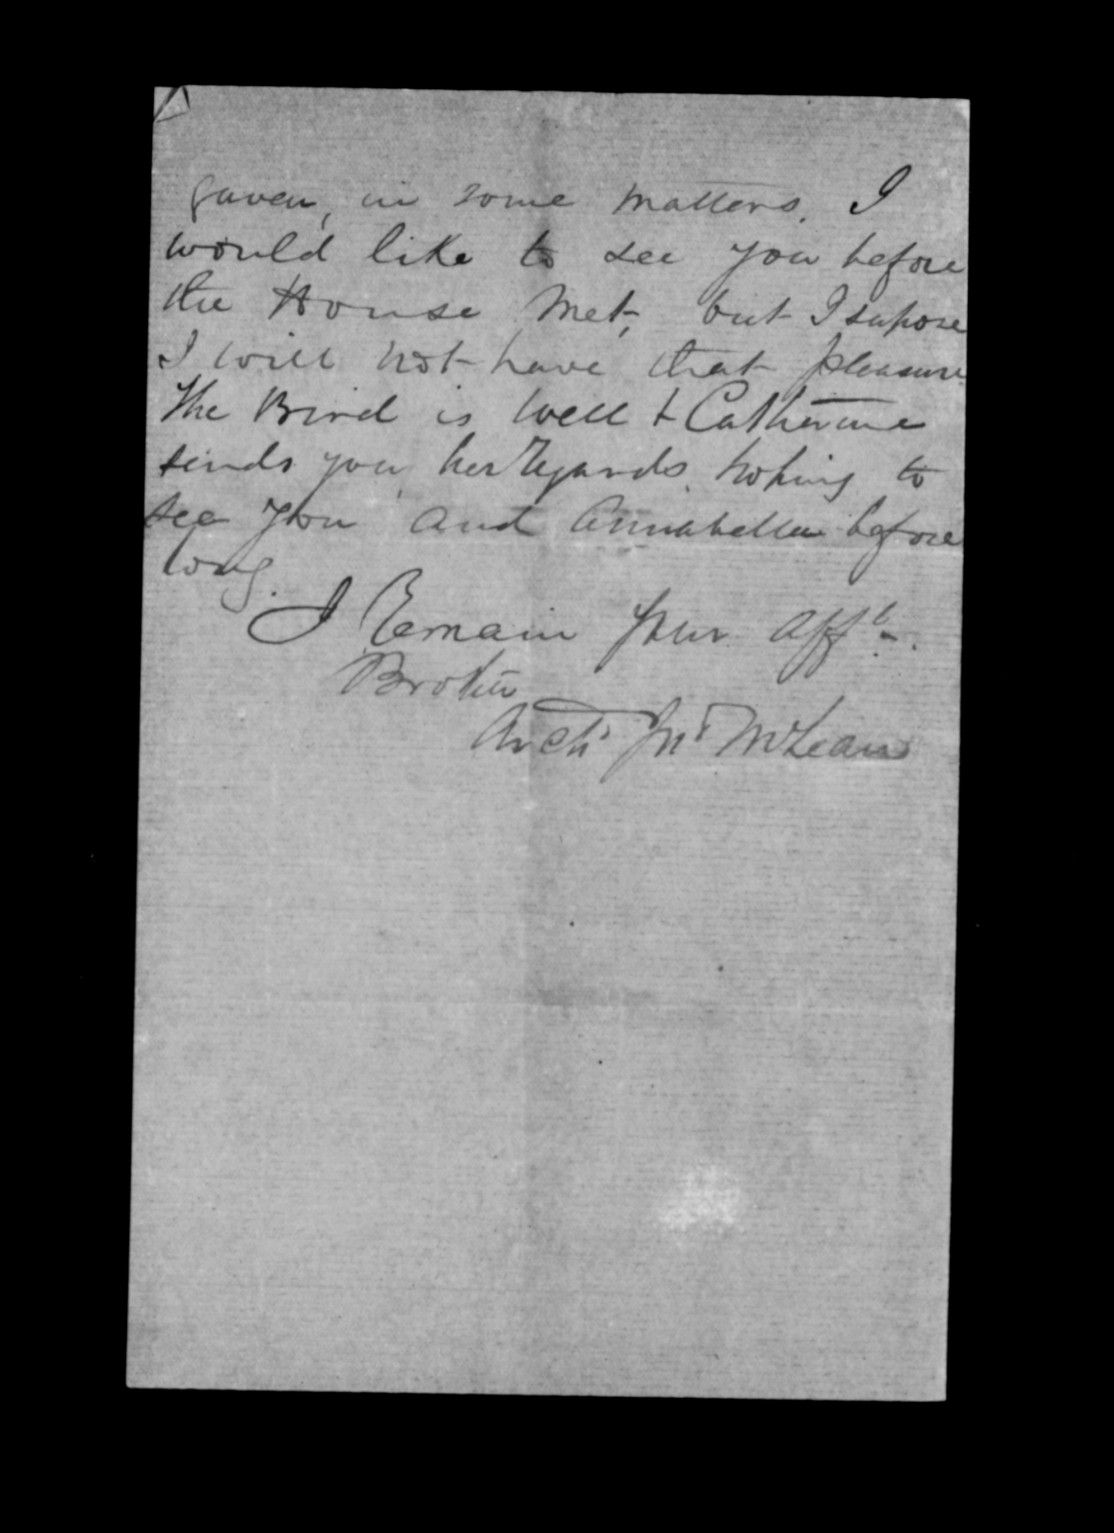 gaven, in some matters. I
would like to see you before
the House Met, but I supose
I will not have that pleasure
The Bird is well & Catherine
sends you her regards. hoping to
see you and Annabella before
long.
I Remain your afft.
Brother
Archd Jno McLean